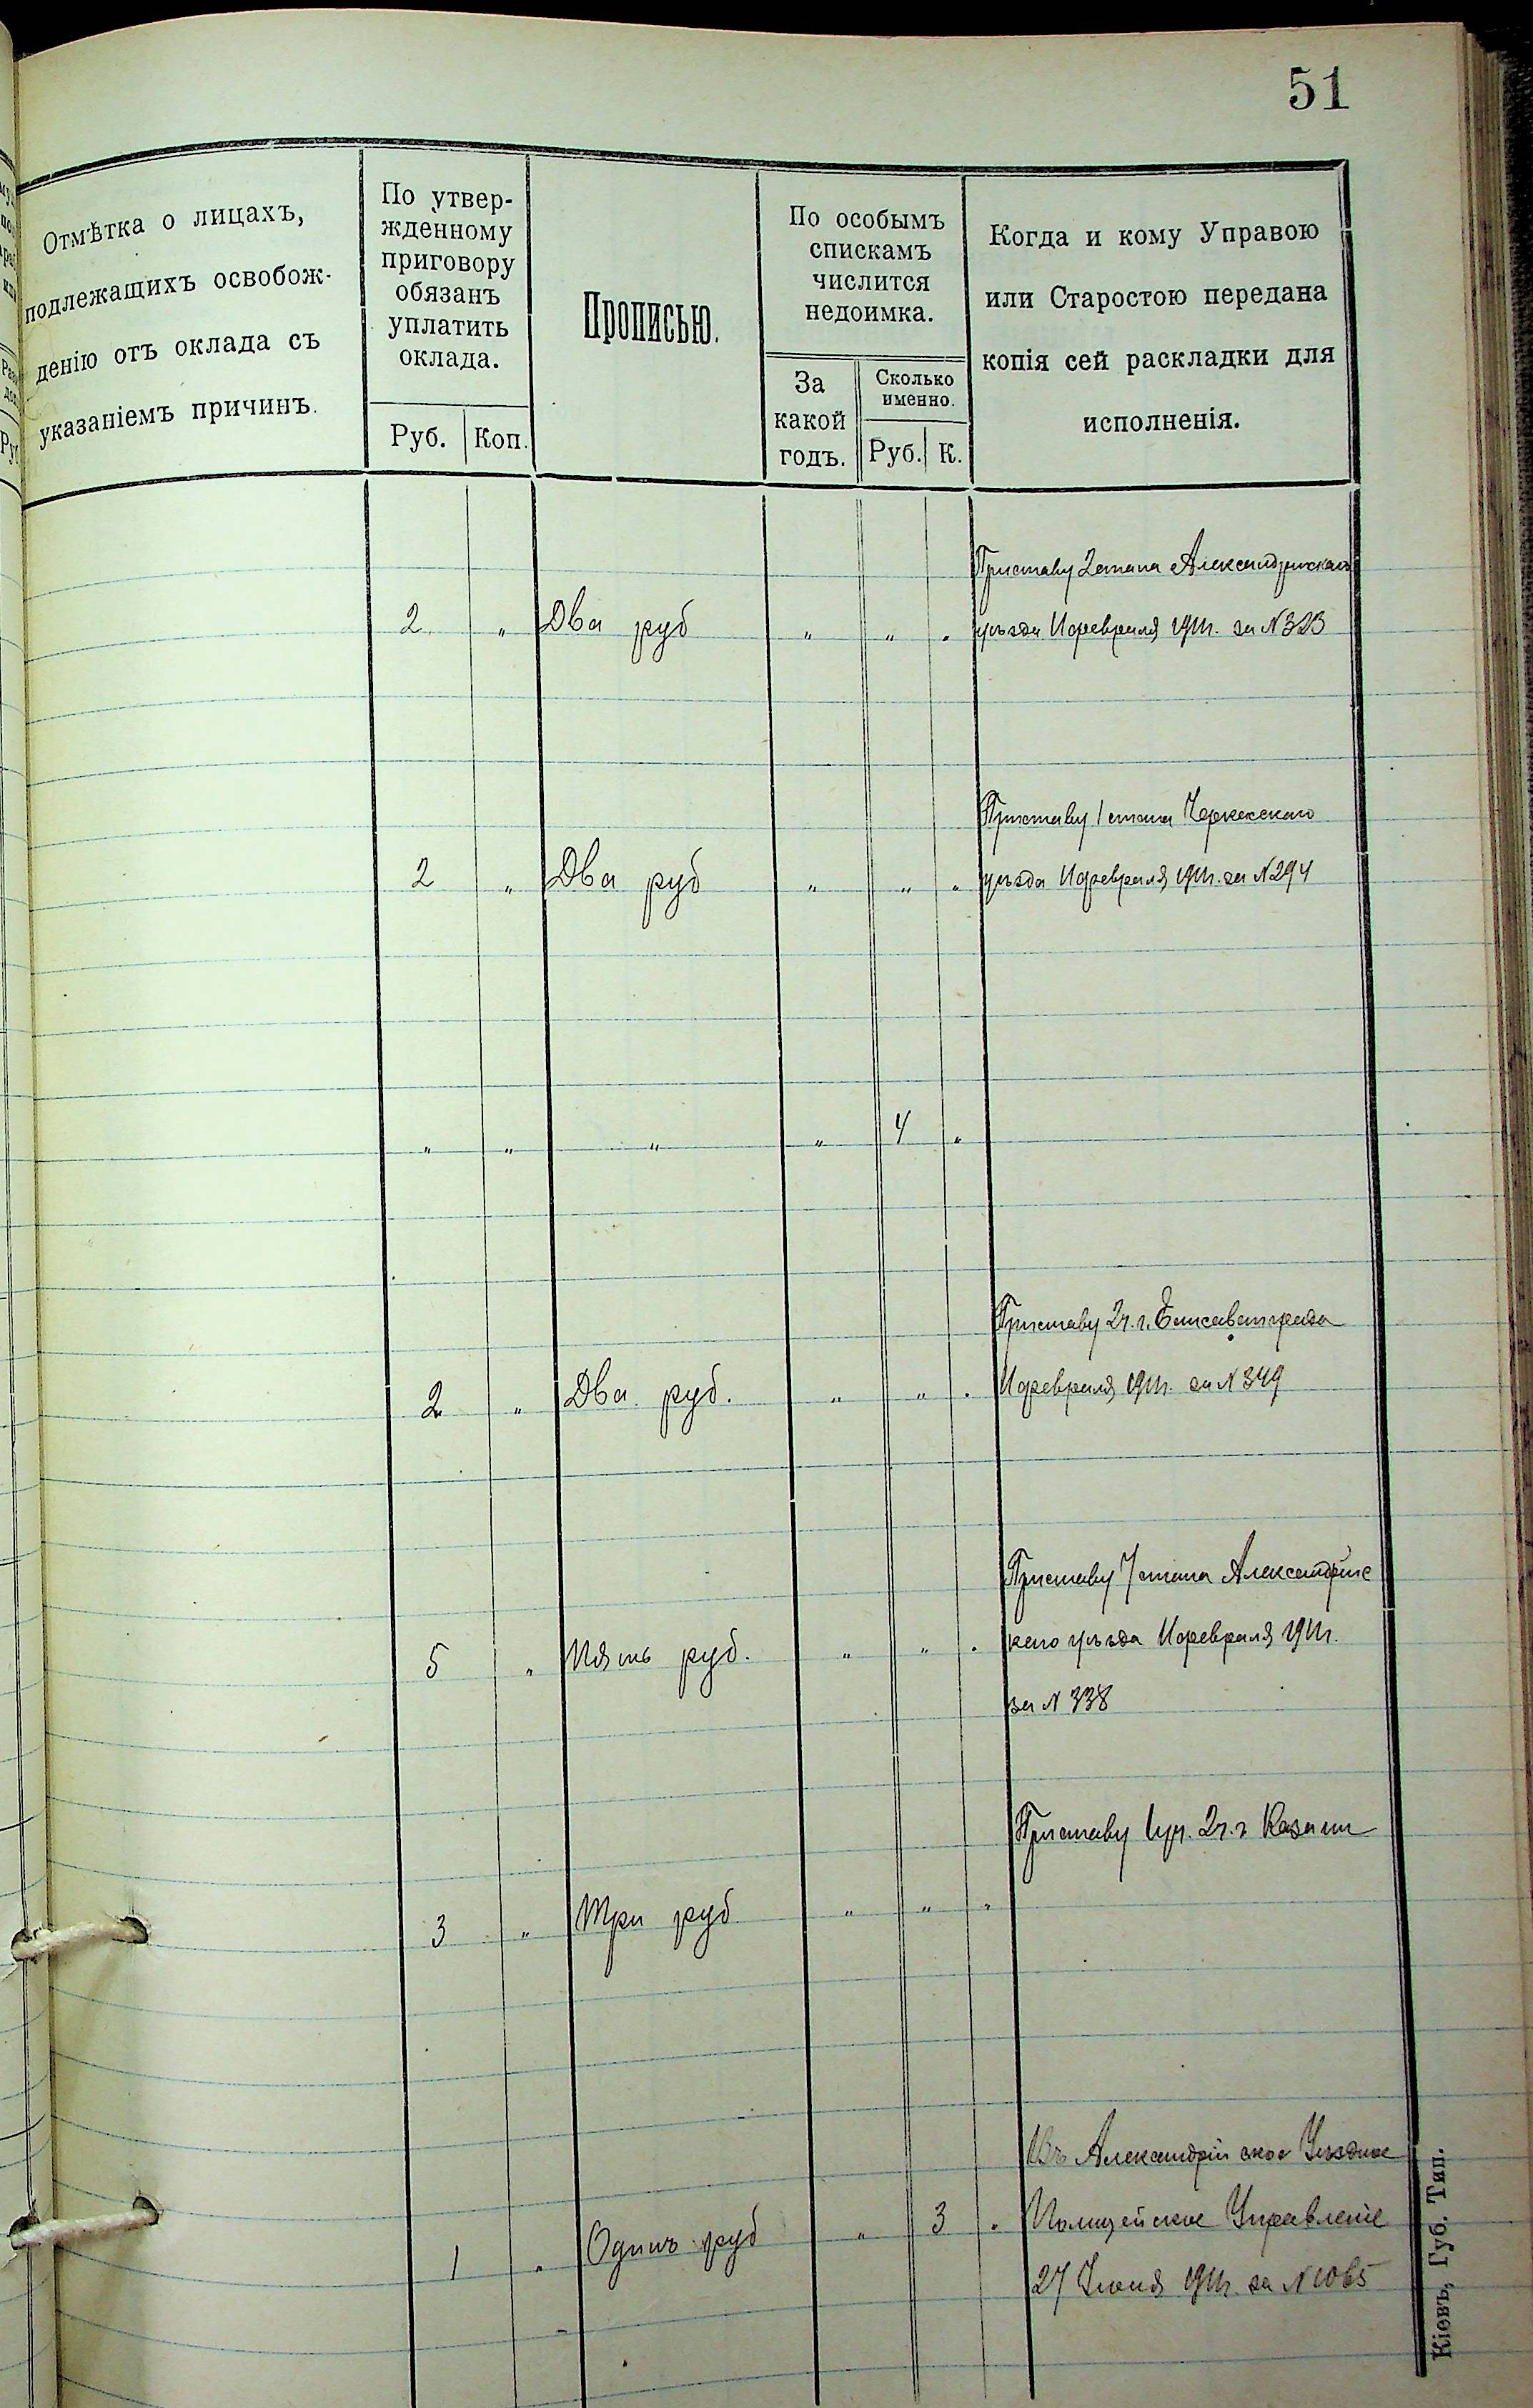 51
Отмѣтка о лицахъ,
подлежащихъ освобож-
денію отъ оклада съ
указаніемъ причинъ.
По утвер-
жденному
приговору
обязанъ
уплатить
оклада.
Руб. Коп.
Прописью.
По особымъ
спискамъ
числится
недоимка.
За
какой
годъ.
Сколько
именно.
Руб. К.
Когда и кому Управою
или Старостою передана
копія сей раскладки для
исполненія.
Приставу 2 стана Александрійскаго
2 " Два руб " " " уѣзда 11 февраля 1911г. за № 323
Приставу 1 стана Черкасскаго
2 " Два руб " " " уѣзда 11 февраля 1911г. за № 294
" " " " 4 "
Приставу 2ч. г. Елисаветграда
2 " Два руб. " " " 11 февраля 1911г. за № 349
Приставу стана Александрійс
5 " Пять руб. " " " каго уѣзда 11 февраля 1911г.
за № 338
Приставу 1уч. 2ч. г Казани
3 " Три руб " " "
Въ Александрійское Уѣздное
1 " Одинъ руб " 3 " Полицейское Управленіе
27 Іюня 1911г. за № 1065
Кіевъ, Губ. Тип.